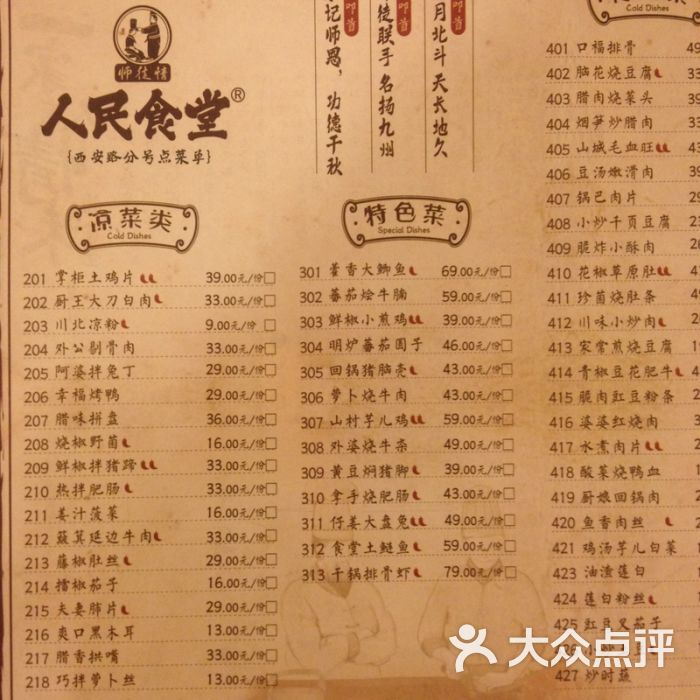 师徒情
人民食堂®
{西安路分号点菜单}
叩首
记师恩,功德千秋
叩首
徒联手 名扬九州
叩首
月北斗 天长地久
凉菜类
Cold Dishes
201 掌柜土鸡片 39.00元/份
202 厨王大刀白肉 33.00元/份
203 川北凉粉 9.00元/份
204 外公剔骨肉 33.00元/份
205 阿婆拌兔丁 29.00元/份
206 幸福烤鸭 33.00元/份
207 腊味拼盘 36.00元/份
208 烧椒野菌 16.00元/份
209 鲜椒拌猪蹄 33.00元/份
210 热拌肥肠 33.00元/份
211 姜汁菠菜 16.00元/份
212 簸箕延边牛肉 33.00元/份
213 藤椒肚丝 29.00元/份
214 擂椒茄子 16.00元/份
215 夫妻肺片 29.00元/份
216 爽口黑木耳 13.00元/份
217 腊香拱嘴 33.00元/份
218 巧拌萝卜丝 13.00元/份
特色菜
Special Dishes
301 藿香大鲫鱼 69.00元/份
302 蕃茄烩牛腩 59.00元/份
303 鲜椒小煎鸡 39.00元/份
304 明炉蕃茄圆子 46.00元/份
305 回锅猪脑壳 43.00元/份
306 萝卜烧牛肉 43.00元/份
307 山村芋儿鸡 59.00元/份
308 外婆烧牛杂 49.00元/份
309 黄豆焖猪脚 39.00元/份
310 拿手烧肥肠 43.00元/份
311 仔姜大盘兔 49.00元/份
312 食堂土鲢鱼 59.00元/份
313 干锅排骨虾 79.00元/份
Cold Dishes
401 口福排骨
402 脑花烧豆腐 33
403 腊肉烧菜头 39
404 烟笋炒腊肉
405 山城毛血旺
406 豆汤嫩滑肉
407 锅巴肉片
408 小炒千页豆腐
409 脆炸小酥肉
410 花椒草原肚
411 珍菌烧肚条
412 川味小炒肉
413 家常煎烧豆腐
414 青椒豆花肥牛
415 脆肉豇豆粉条
416 婆婆红烧肉
417 水煮肉片
418 酸菜烧鸭血
419 厨娘回锅肉
420 鱼香肉丝
421 鸡汤芋儿白菜
423 油渣莲白
424 莲白粉丝
425 豇豆叉茄子
426
427 炒时蔬
大众点评